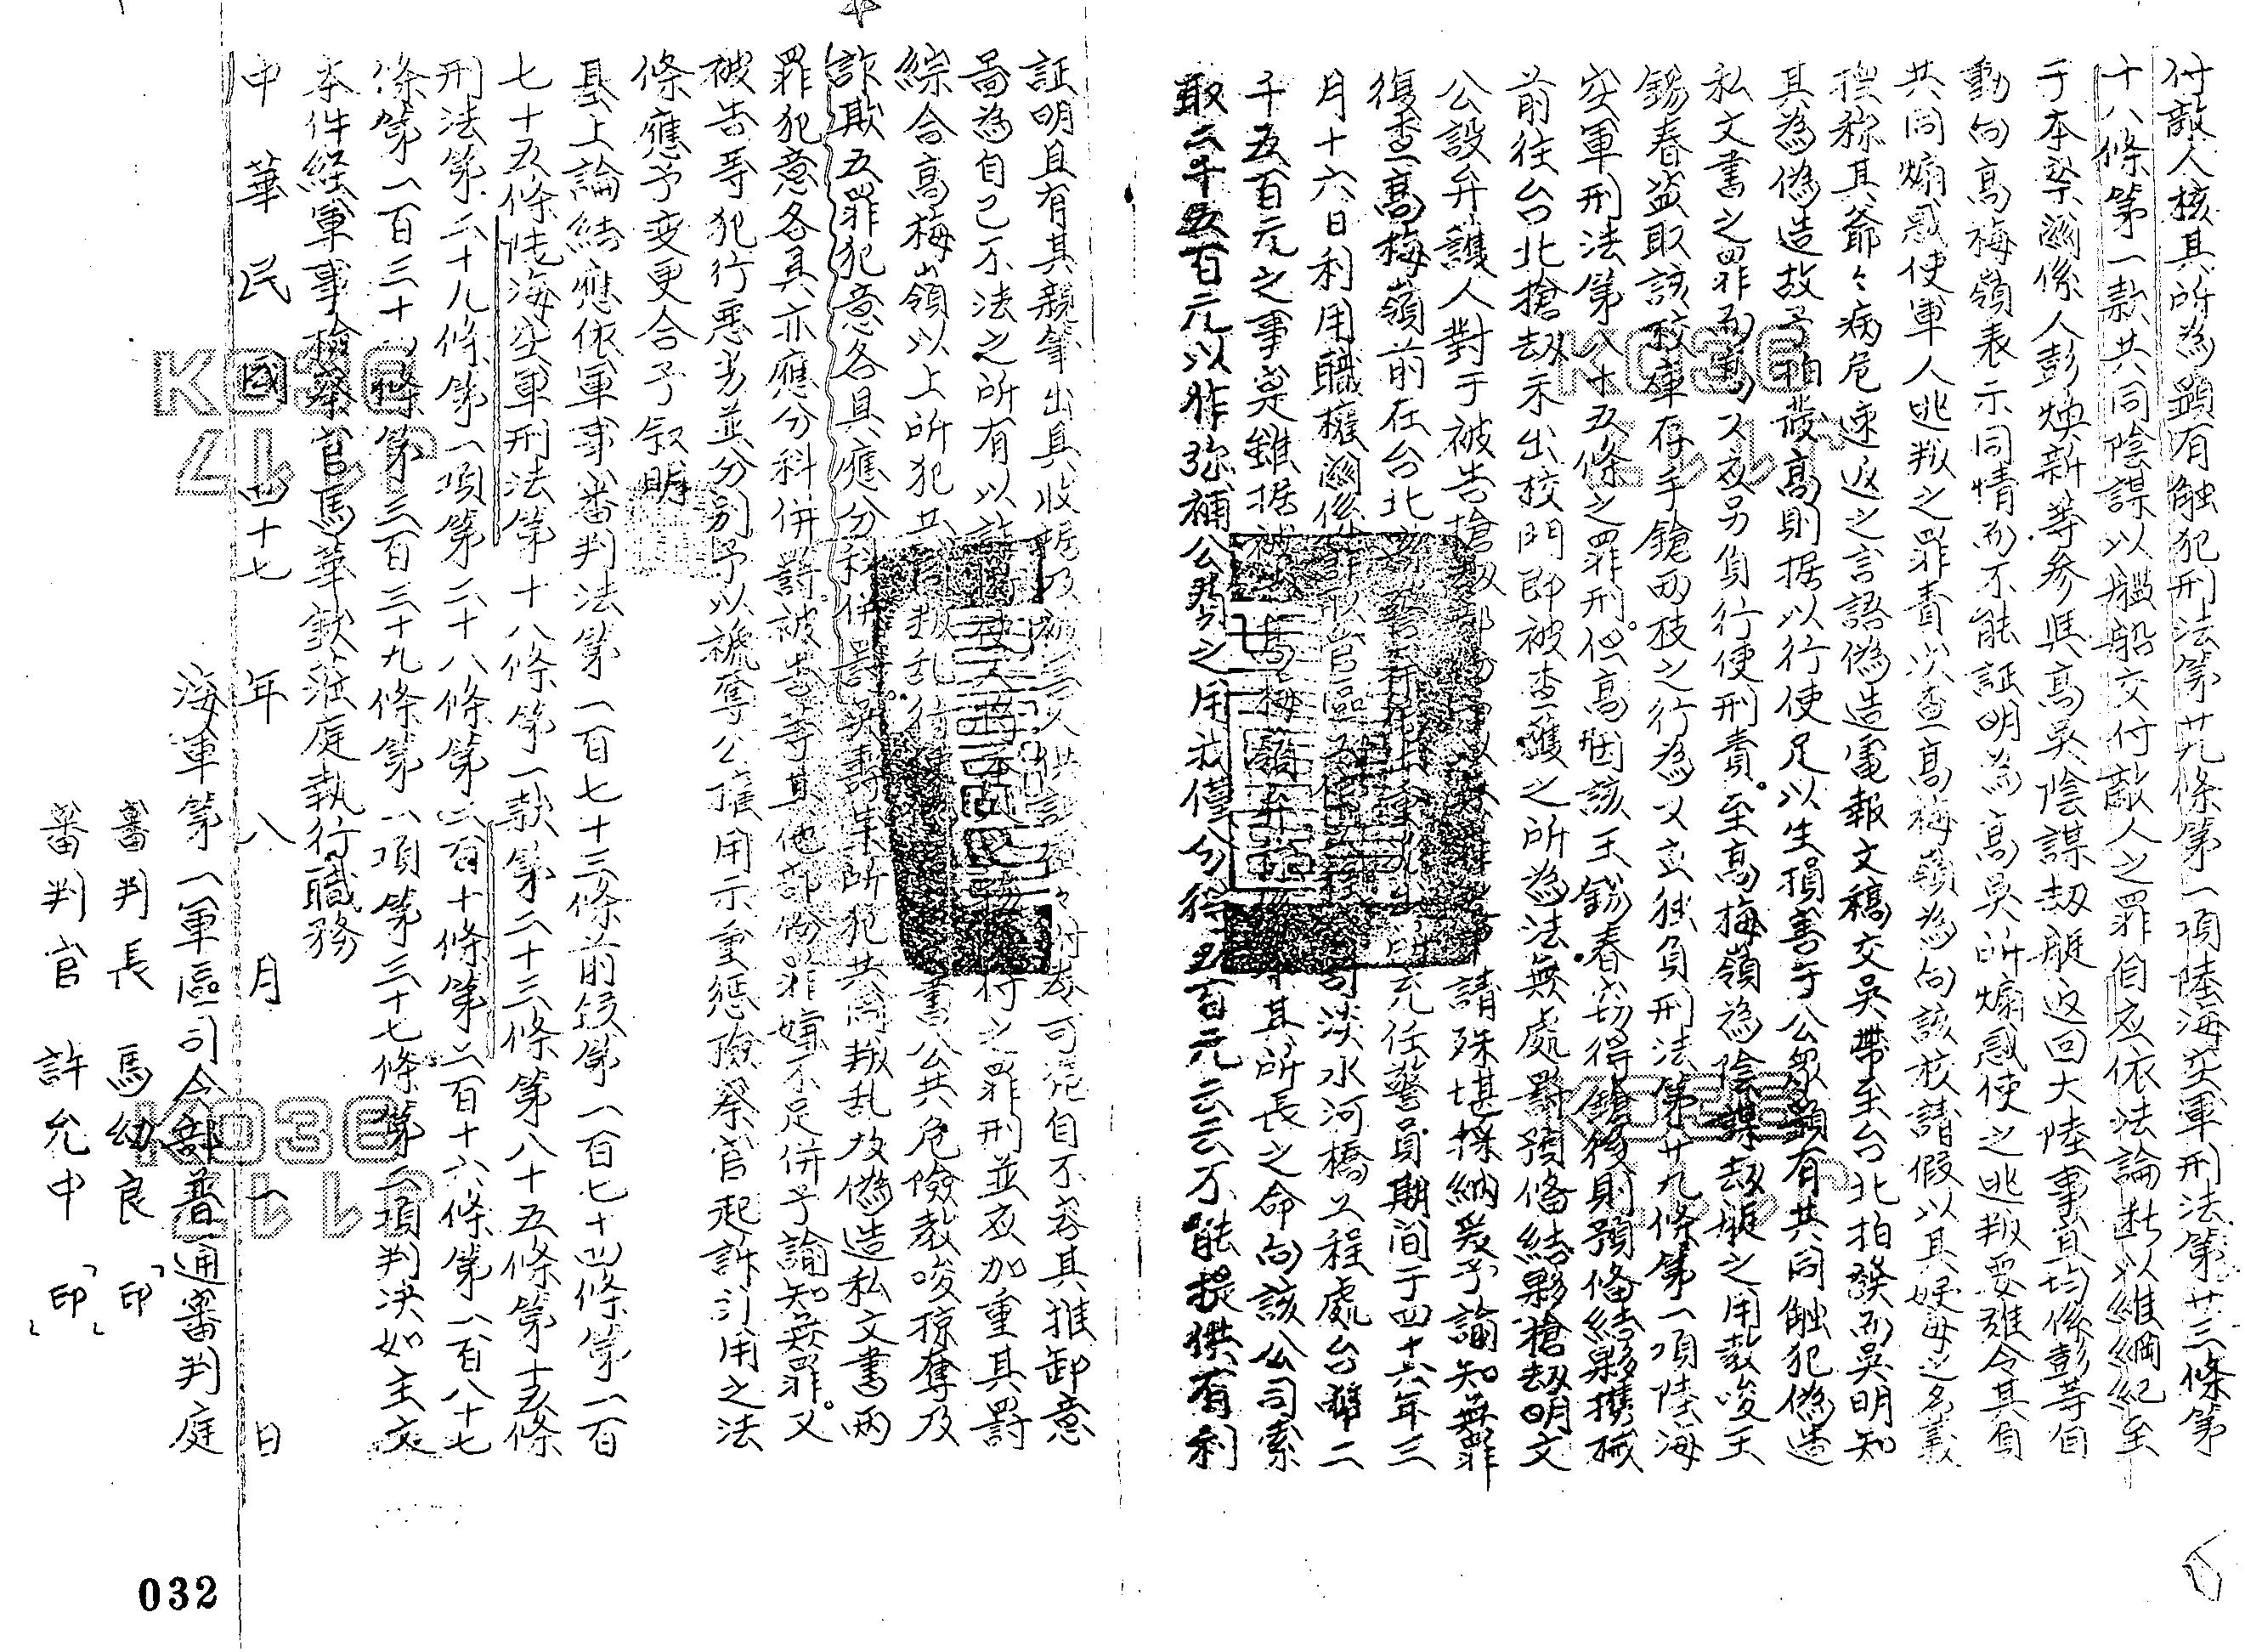 付敵人核其所為顕有触犯刑法第廿九條第一項陸海空軍刑法第廿三條第
十八條第一款共同陰謀以艦船交付敵人之罪自应依法論断以維綱紀至
于本案關係人彭煥新等參與高吳陰謀劫艇返回大陸事宜均係彭等自
動向高梅嶺表示同情而不能証明為高吳所煽惑使之逃叛要难令其負
共同煽惑使軍人逃叛之罪責次查高梅嶺為向該校請假以其好母之名義
捏称其爺々病危速返之言語偽造電報文稿交吳帶至台北拍發而吳明知
其為偽造故予拍發高則据以行使足以生損害于公眾顕有共同触犯偽造
私文書之罪而高又应另負行使刑責。至高梅嶺為陰謀劫艇之用教唆王
錫春盜取該校庫存手鎗兩枝之行為又应独負刑法第廿九條第一項陸海
空軍刑法第八十五條之罪刑。但高
前往台北搶劫未出校門即被查獲之所為法無處罰預備結夥搶劫明文
公設弁護人對于被告搶劫部
請殊堪採納爰予諭知無罪
復查高梅嶺前在台北
充任警員期间于四十六年三
月十六日利用職權關係
淡水河橋工程處台幣二
千五百元之事实雖据被告高梅嶺弁
其所長之命向該公司索
取二千五百元以作弥補公務之用我僅分得五百元云云不能提供有利
証明且有其親筆出具收据及被害人供証
可凭自不容其推卸意
圖為自己不法之所有以詐術使人將本人之物
付之罪刑並应加重其罰
綜合高梅嶺以上所犯共同叛乱行使偽造
書公共危險教唆掠奪及
詐欺五罪犯意各具應分科併罰吳壽
所犯共同叛乱及偽造私文書兩
罪犯意各具亦應分科併罰。被告等其他部份罪嫌不足併予諭知無罪。又
被告等犯行惡劣並分別予以褫奪公權用示重惩檢察官起訴引用之法
條應予变更合予叙明
基上論結應依軍事審判法第一百七十三條前段第一百七十四條第一百
七十五條陸海空軍刑法第十八條第一款第二十三條第八十五條第十五條
刑法第二十九條第一項第二十八條第二百十條第二百十六條第一百八十七
條第一百三十四條第三百三十九條第一項第三十七條第二項判决如主文
本件経軍事檢察官馬華欽蒞庭執行職務
中華民國四十七年八月一日
海軍第一軍區司令部普通審判庭
審判長 馬幼良「印」
審判官 許允中「印」
032